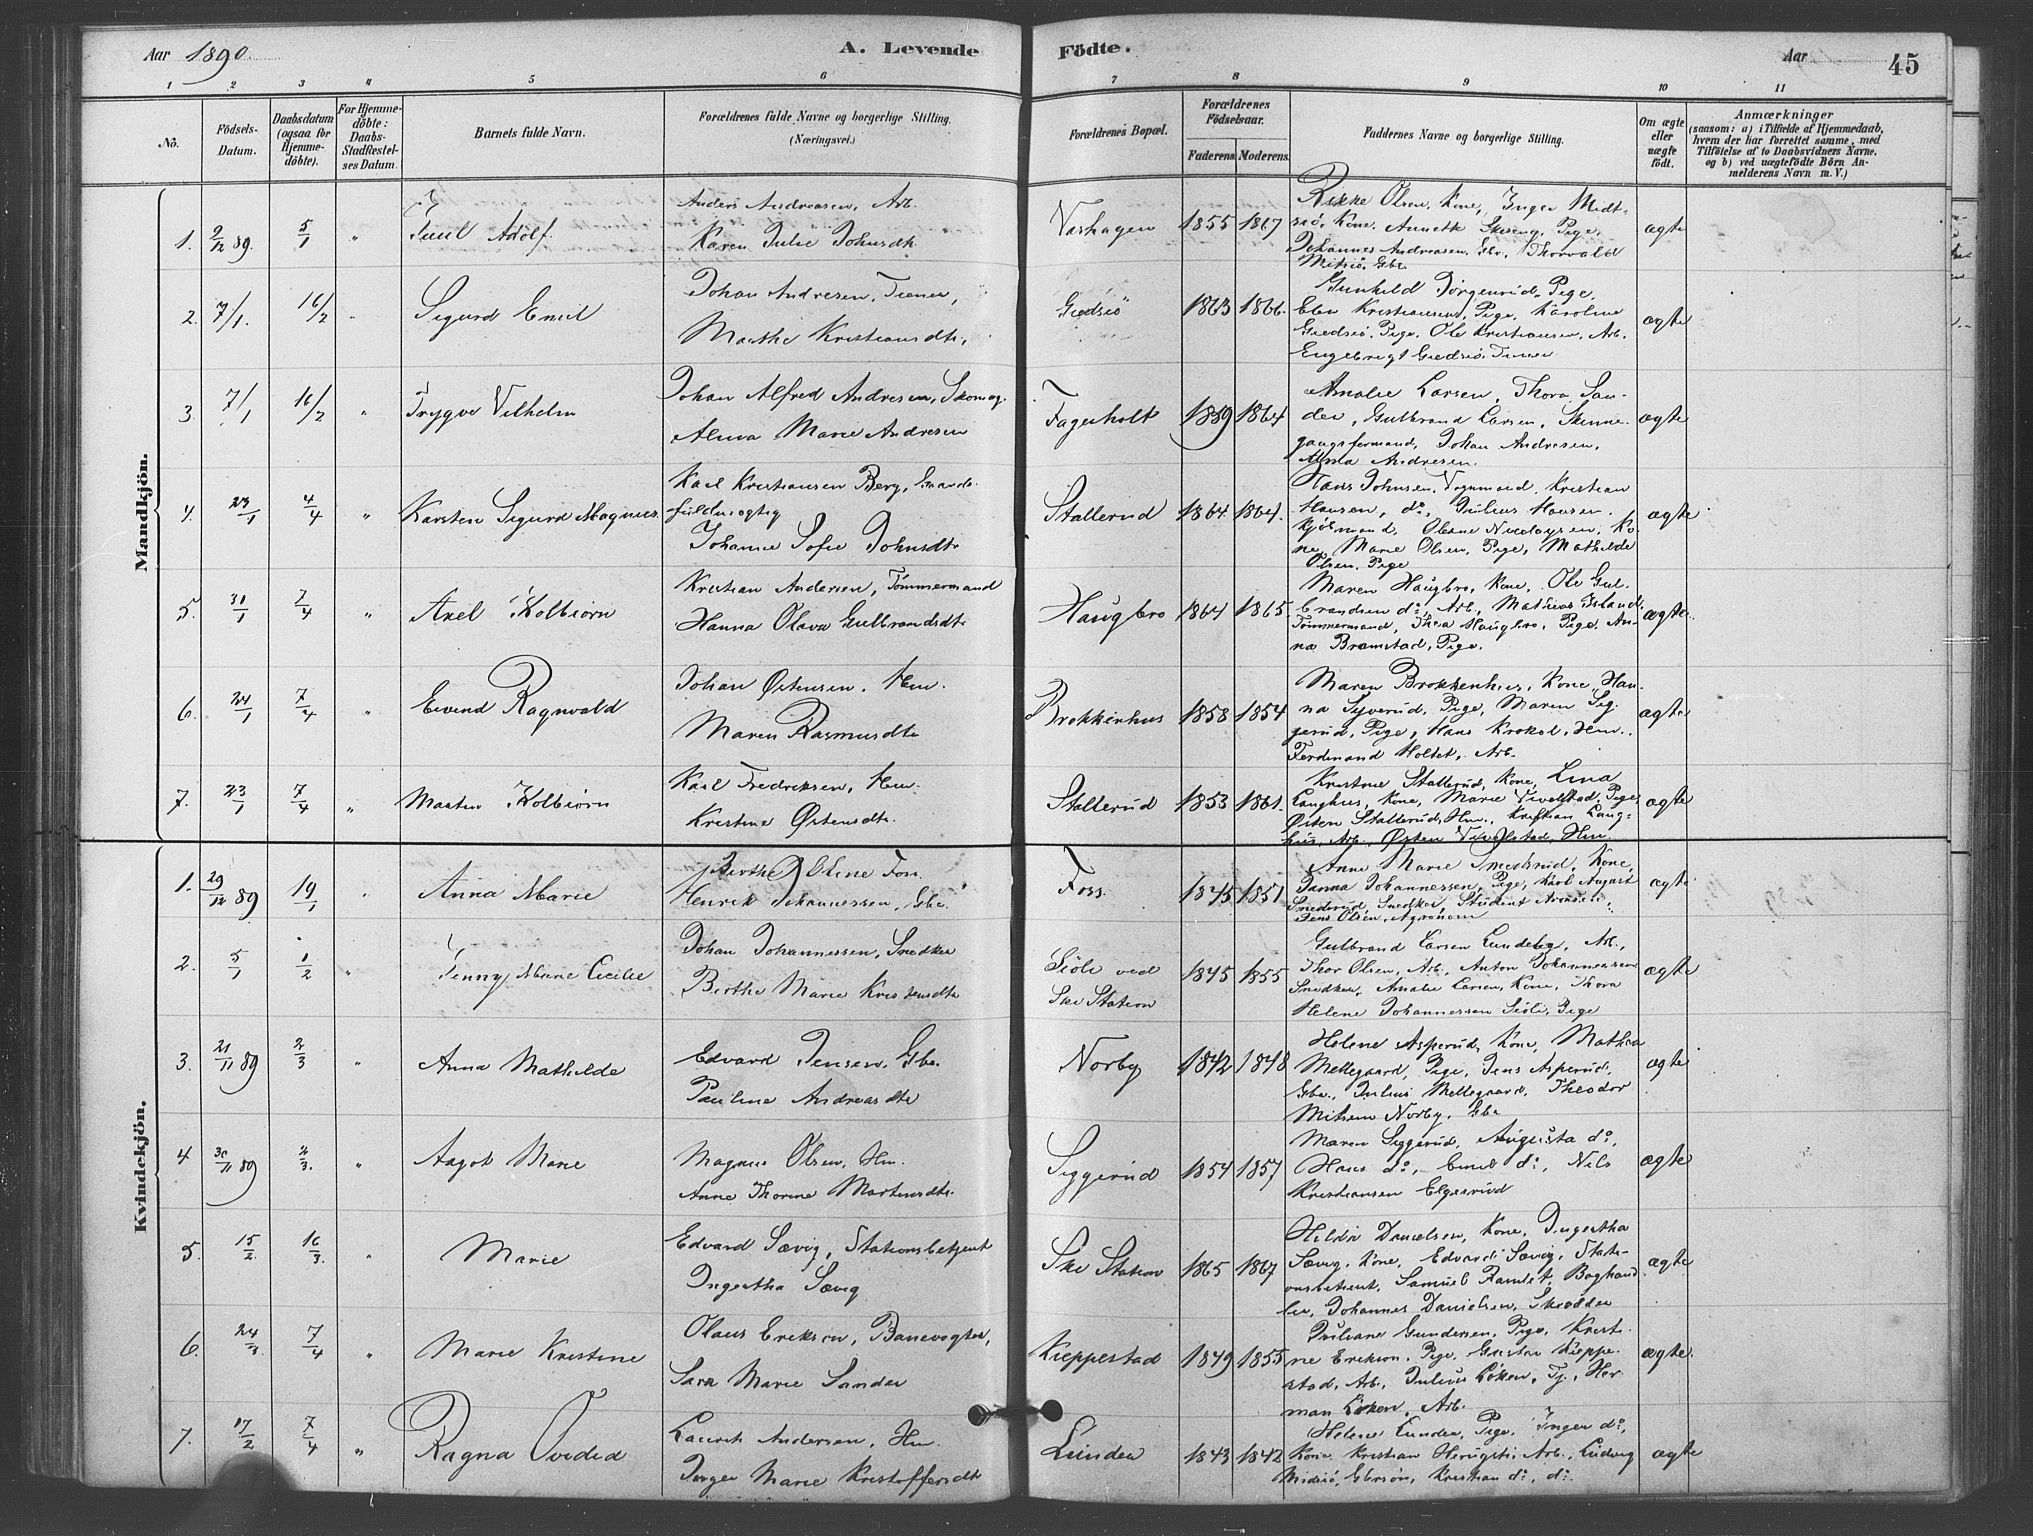 Aar 1890. A. Levende Fødte. Aar 45
1 2 3 4 5 6 7 8 9 10 11
No. Födsels-Datum. Daabsdatum (ogsaa for Hjemme-döbte). For Hjemme-döbte: Daabs-Stadfæstel-ses Datum. Barnets fulde Navn. Forældrenes fulde Navne og borgerlige Stilling. (Næringsvei.) Forældrenes Bopæl. Forældrenes Födselsaar. Faderens Moderens. Faddernes Navne og borgerlige Stilling. Om ægte eller uægte födt. Anmærkninger (saasom: a) i Tilfælde af Hjemmedaab, hvem der har forrettet samme, med Tilföielse af to Daabsvidners Navne. og b) ved uægtefödte Börn An-melderens Navn m. V.)
Mandkjön.
1. 9/12 89. 5/1 " Juul Adolf
Anders Andreasen, Arb.
Karen Julie Johnsdt.
Vashagen 1855 1867
Rikke Olsen, Kone, Inger Midt-
siö, Kone, Annette Skreng, Pige,
Johannes Andreasen, Gbr., Thorvald
Mitsiö, Gbr.
ægte
2. 7/1. 16/2 " Sigurd Emil
Johan Andresen, Tjener,
Marthe Kristiansdt.
Gjedsiö 1863 1866.
Gunhild Jörgensrud, Pige,
Elen Kristiansen, Pige, Karoline
Gjedsiö, Pige, Ole Kristiansen, Arb.
Engebrigt Gjedsiö, Tjener
ægte
3. 7/1 16/2 " Trygve Vilhelm
Johan Alfred Andresen, Skomag.
Alma Marie Andresen
Fagerholt 1859 1864
Amalie Larsen, Thora San-
der, Gulbrand Larsen, Skinne-
gangsformand, Johan Andresen,
Alma Andresen.
ægte
4. 29/1 4/4 " Karsten Sigurd Magnus
Karl Kristiansen Berg, Gaards-
fuldmægtig
Johanne Sofie Johnsdt.
Stallerud 1864 1864.
Hans Johnsen, Vognmand, Kristian
Hansen, do, Julius Hansen,
Kjöbmand, Oleane Nicolaysen, Ko-
ne, Marie Olsen, Pige, Mathilde
Olsen, Pige
ægte
5. 31/1 7/4 " Axel Kolbiörn
Kristian Andersen, Tömmermand
Hanna Olava Gulbrandsdt.
Haugbro 1864 1865.
Maren Haugbro, Kone, Ole Gul-
brandsen do, Arb., Mathias
Tömmermand, Thea Haugbro, Pige, An-
na Bramstad, Pige.
ægte.
6. 24/1 7/4 " Eivind Ragnvald
Johan Østensen, Hm.
Maren Rasmusdt.
Brokkenhus 1858 1854
Maren Brokkenhus, Kone, Han-
na Syverud, Pige, Maren Sig-
gerud, Pige, Hans Krokol, Hm.,
Ferdinand Holtet, Arb.
ægte
7. 23/1 7/4 " Martin Kolbiörn
Karl Fredriksen, Hm.
Kristine Østensdt.
Stallerud 1853 1861.
Kristine Stallerud, Kone, Lina
Langhus, Kone, Marie Vevelstad, Pige,
Østen Stallerud, Hm., Kristian Lang-
hus, Arb., Østen Vevelstad, Hm.
ægte
Kvindekjön.
1. 29/12 89 19/1 " Anna Marie
Berthe Oline Foss
Henrik Johannessen, Gbr.
Foss. 1845 1851
Anne Marie Smedsrud, Kone,
Johannessen, Pige, Karl August
Snedkerud, Snedker, Student Aronsen,
Jens Olsen, Agronom
ægte
2. 5/1 1/2 " Jenny Marie Cecilie
Johan Johannessen, Snedker
Berthe Marie Kristensdt.
Siöli ved
Ski Station
1845 1855
Gulbrand Larsen Lundeby, Arb.,
Thor Olsen, Arb., Anton Johannessen
Snedker, Amalie Larsen, Kone, Thora
Helene Johannessen Siöli, Pige
ægte
3. 21/11 89 2/3 " Anna Mathilde
Edvard Jensen, Gbr.
Pauline Andreasdt.
Norby 1842 1848
Helene Asperud, Kone, Mathea
Mellegaard, Pige, Jens Asperud,
Gbr., Julius Mellegaard, Theodor
Norby, Gbr
ægte
4 30/11 89 2/3. " Aagot Marie
Magnus Olsen, Hm.
Anne Thorine Martinsdt.
Siggerud 1854 1857
Maren Siggerud, Augusta do,
Hans do, Emil do, Nils
Kristiansen Elgesrud
ægte
5. 15/2. 16/3. " Marie
Edvard Sævig, Stationsbetjent
Ingertha Sævig
Ski Station 1865 1867
Hilda Danielsen, Kone, Ingertha
Sævig, Kone, Edvard Sævig, Stati-
onsbetjent, Samuel Ramlet, Boghand-
ler, Johannes Danielsen, Skrædder
ægte.
6. 24/3. 7/4 " Marie Kristine
Olaus Eriksen, Banevogter,
Sara Marie Sander
Kieppestad 1849 1855
Juliane Gundersen, Pige, Kristi-
ne Erikson, Pige, Gustav Kieppe-
stad, Arb., Julius Löken, Tj., Her-
man Löken, Arb.
ægte.
7. 17/2 7/4 " Ragna Ovidia
Laurits Andersen, Hm.
Inger Marie Kristoffersdt
Lunden 1843 1842
Helene Lunden, Pige, Inger do,
Kone, Kristian Arb., Ludvig
Midsiö, Gbrsön, Kristian do, do.
ægte